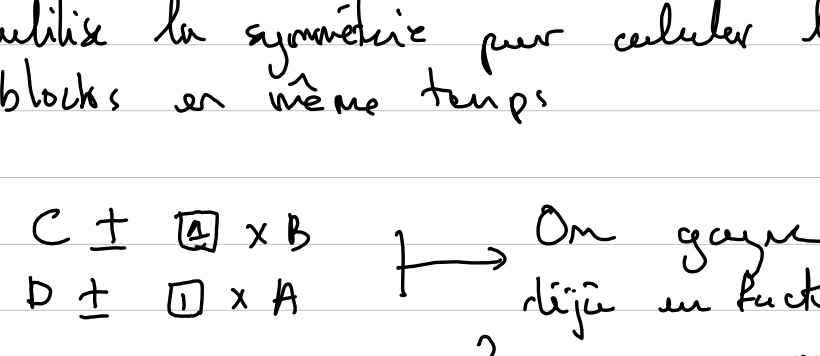 utilise la symmétrie pour calculer l
blocks en même temps
C ± 1 × B
D ± 1 × A
On gagne
déjà en fact
2